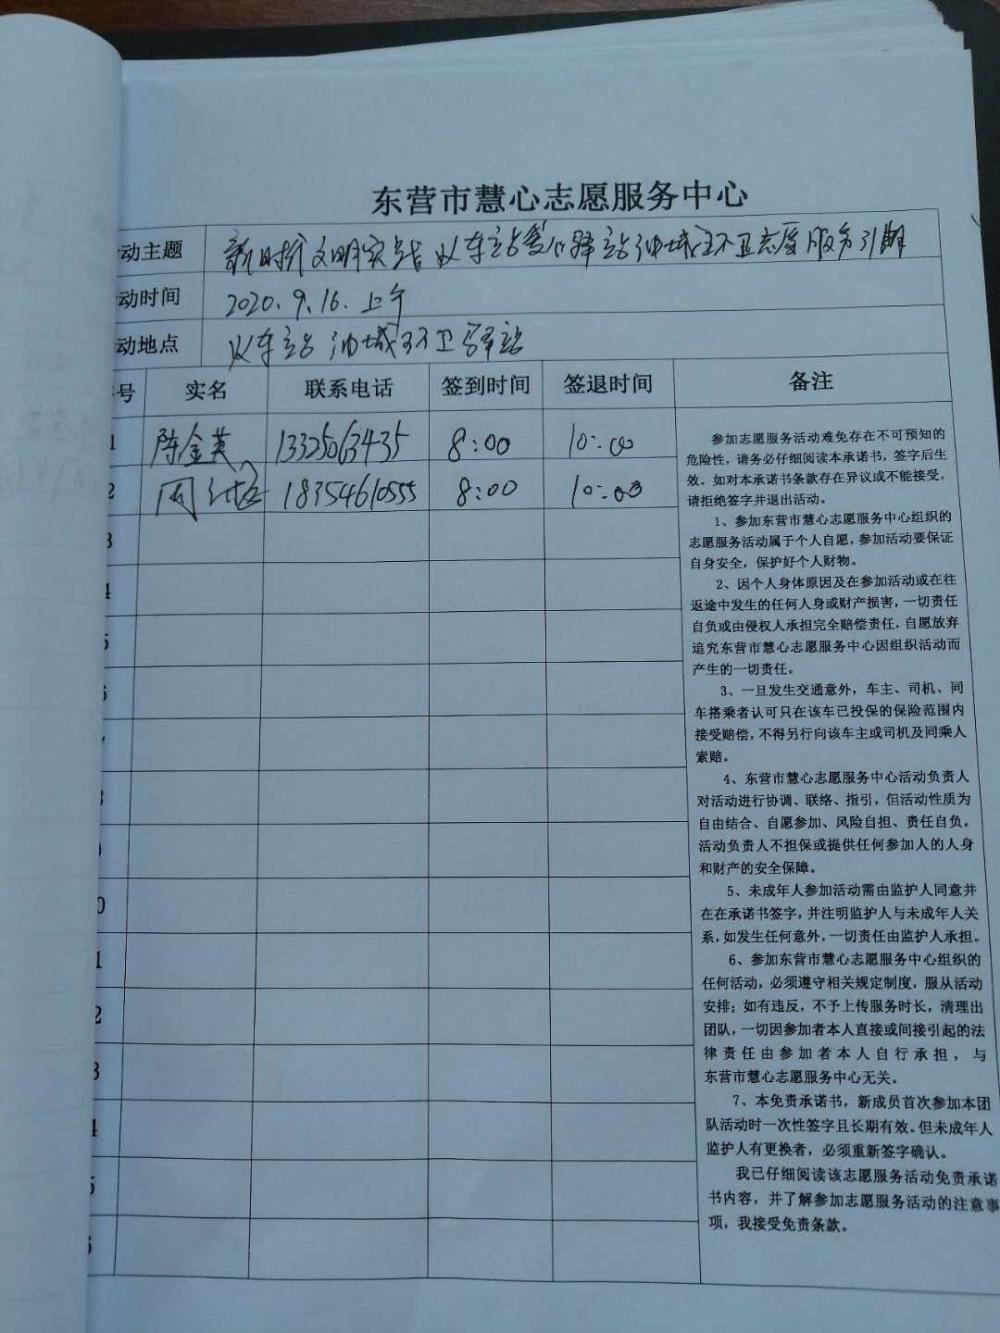 东营市慧心志愿服务中心
动主题 新时代文明实践 火车站 驿站油城环卫志愿服务引期
动时间 2020.9.16.上午
动地点 火车站油城环卫驿站
号 实名 联系电话 签到时间 签退时间 备注
1 陈金英 13325063435 8:00 10:00
2 周 18354610555 8:00 10:00
3
4
5
6
7
8
9
0
1
2
3
4
5
6
参加志愿服务活动难免存在不可预知的
危险性，请务必仔细阅读本承诺书，签字后生
效。如对本承诺书条款存在异议或不能接受，
请拒绝签字并退出活动。
1、参加东营市慧心志愿服务中心组织的
志愿服务活动属于个人自愿，参加活动要保证
自身安全，保护好个人财物。
2、因个人身体原因及在参加活动或在往
返途中发生的任何人身或财产损害，一切责任
自负或由侵权人承担完全赔偿责任，自愿放弃
追究东营市慧心志愿服务中心因组织活动而
产生的一切责任。
3、一旦发生交通意外，车主、司机、同
车搭乘者认可只在该车已投保的保险范围内
接受赔偿，不得另行向该车主或司机及同乘人
索赔。
4、东营市慧心志愿服务中心活动负责人
对活动进行协调、联络、指引，但活动性质为
自由结合、自愿参加、风险自担、责任自负。
活动负责人不担保或提供任何参加人的人身
和财产的安全保障。
5、未成年人参加活动需由监护人同意并
在在承诺书签字，并注明监护人与未成年人关
系，如发生任何意外，一切责任由监护人承担。
6、参加东营市慧心志愿服务中心组织的
任何活动，必须遵守相关规定制度，服从活动
安排；如有违反，不予上传服务时长，清理出
团队，一切因参加者本人直接或间接引起的法
律责任由参加者本人自行承担，与
东营市慧心志愿服务中心无关。
7、本免责承诺书，新成员首次参加本团
队活动时一次性签字且长期有效。但未成年人
监护人有更换者，必须重新签字确认。
我已仔细阅读该志愿服务活动免责承诺
书内容，并了解参加志愿服务活动的注意事
项，我接受免责条款。